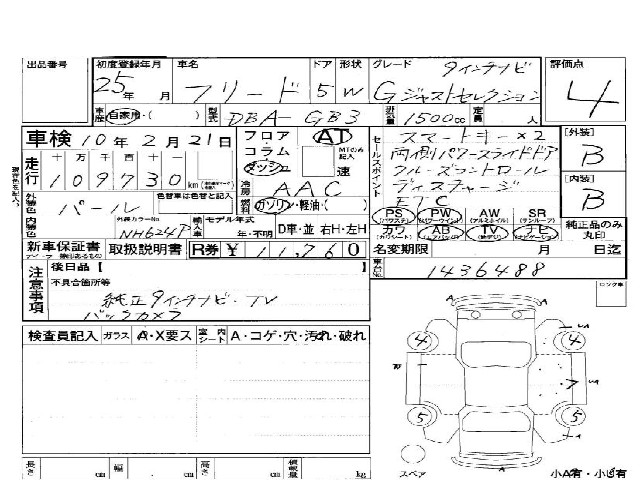 出品番号
初度登録年月 25年 月
車名 フリード
ドア 5
形状 W
グレード 9インチナビ
Gジャストセレクション
評価点 4
車歴 自家用・( )
型式 DBA-GB3
排気量 1500cc
定員 人
車検 10年2月21日
フロア・コラム・ダッシュ
AT
MTのみ記入 速
セールスポイント
スマートキー×2
両側パワースライドドア
クルーズコントロール
ディスチャージ
ETC
[外装] B
[内装] B
走行 十万千百十
109730km
冷房 AAC
燃料 ガソリン・軽油・( )
外装色 パール
色替車は色替と記入
外装カラーNo NH624P
輸入車 モデル年式 年・不明
D車・並 右H・左H
PS (パワステ) PW (パワーウインド) AW (アルミホイル) SR (サンルーフ)
カワ AB (エアバッグ) TV ナビ (ナビゲーション)
純正品のみ丸印
新車保証書 取扱説明書 R券 ¥11,760
名変期限 月 日迄
注意事項
後日品[ ]
不具合箇所等
純正9インチナビ・TV
バックカメラ
車台No. 1436488
ロック車
検査員記入 ガラス A・X要ス 室内シート A・コゲ・穴・汚れ・破れ
4 4
5 5
スペア
長さ cm 幅 cm 高さ cm 積載量 kg
小A有・小U有